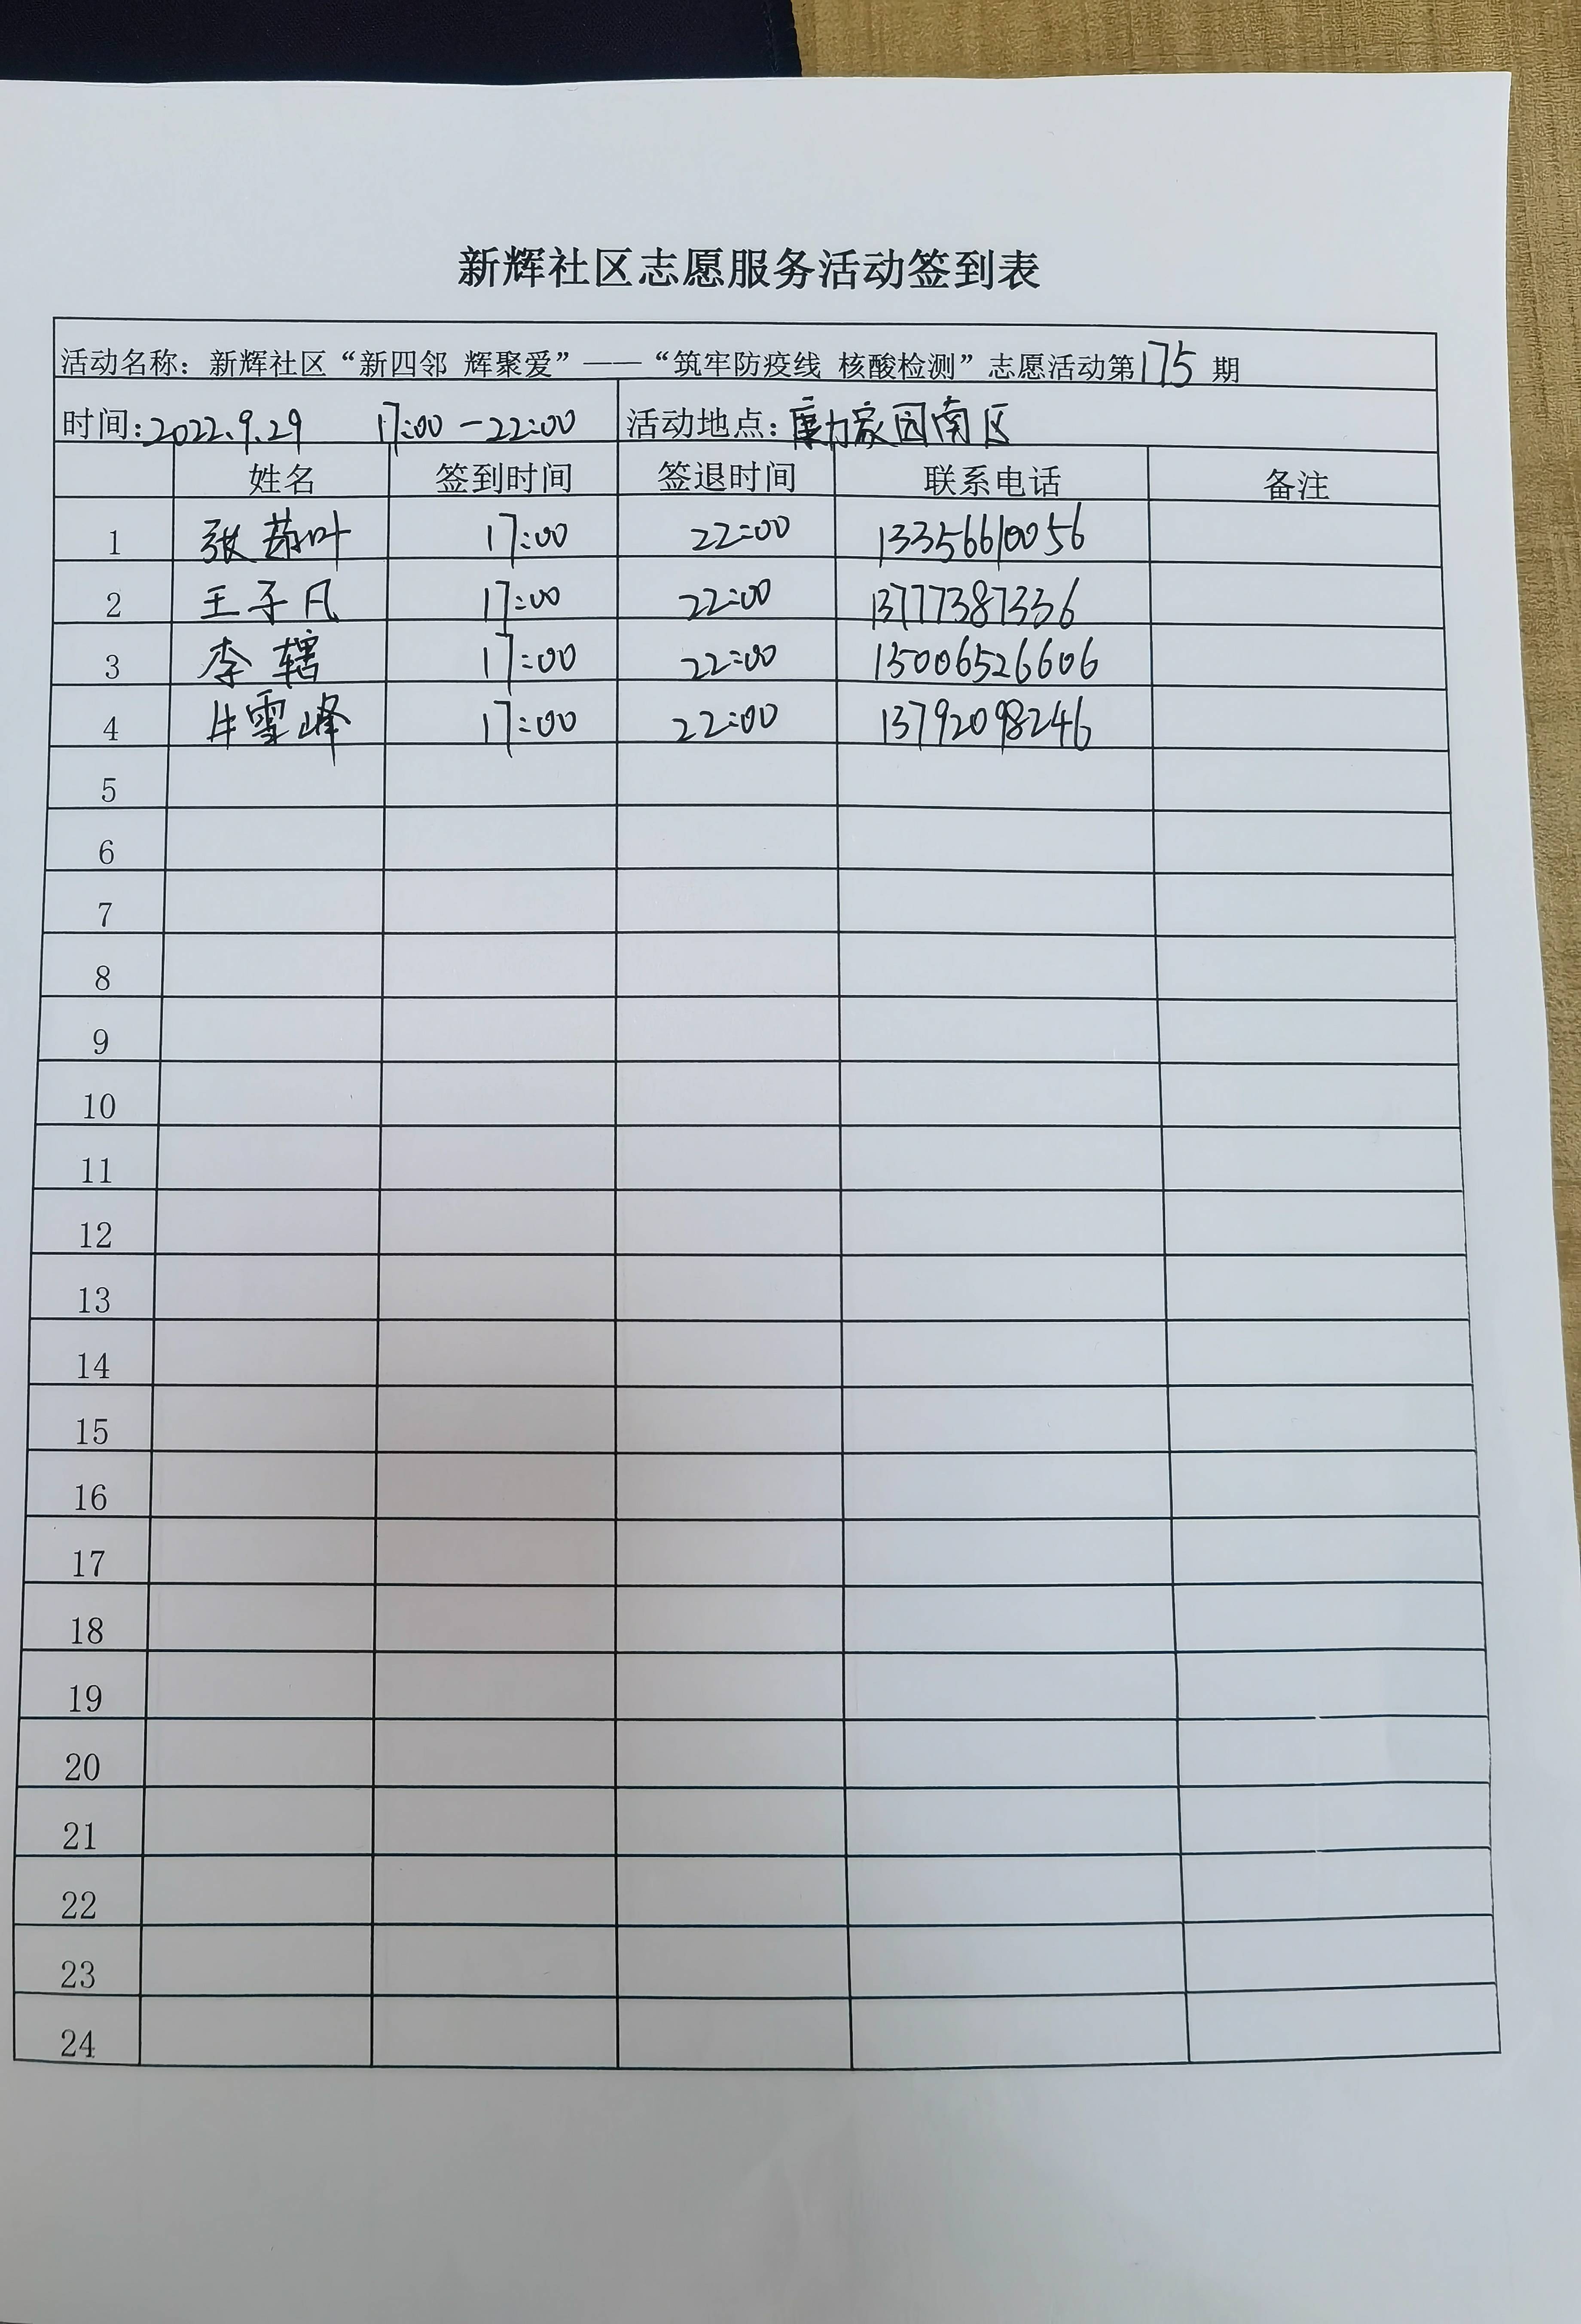 新辉社区志愿服务活动签到表
活动名称：新辉社区“新四邻 辉聚爱”——“筑牢防疫线 核酸检测”志愿活动第175期
时间：2022.9.29 17:00-22:00 活动地点：康力家园南区
姓名 签到时间 签退时间 联系电话 备注
1 张 叶 17:00 22:00 13356610056
2 王子凡 17:00 22:00 13777387336
3 李辖 17:00 22:00 15006526606
4 牛雪峰 17:00 22:00 13792098246
5
6
7
8
9
10
11
12
13
14
15
16
17
18
19
20
21
22
23
24